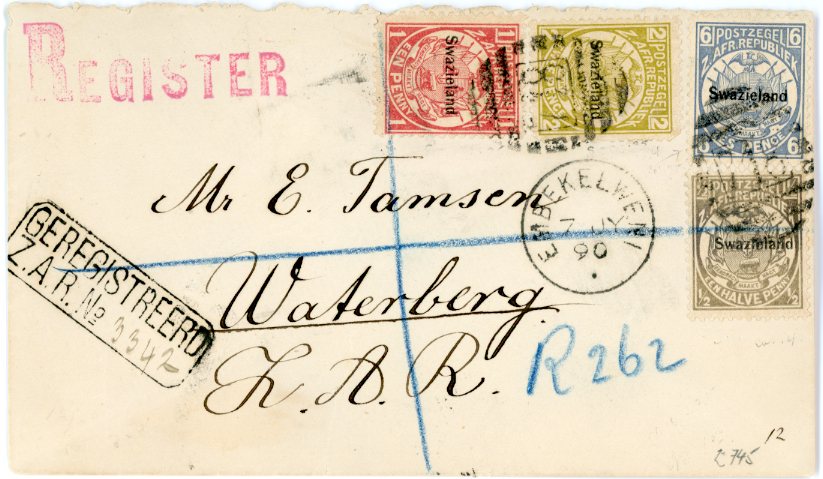 REGISTER
1 EEN PENNY 1
Swazieland
2 POSTZEGEL 2
Z. AFR. REPUBLIEK
Swazieland
6 POSTZEGEL 6
Z. AFR. REPUBLIEK
Swazieland
ZES PENCE
Swazieland
1/2 EEN HALVE PENNY 1/2
EMBEKELWENI
7 JY
90
Mr E. Tamsen
Waterberg
Z. A. R.
GEREGISTREERD
Z.A.R. No 3342
R 262
12
£745